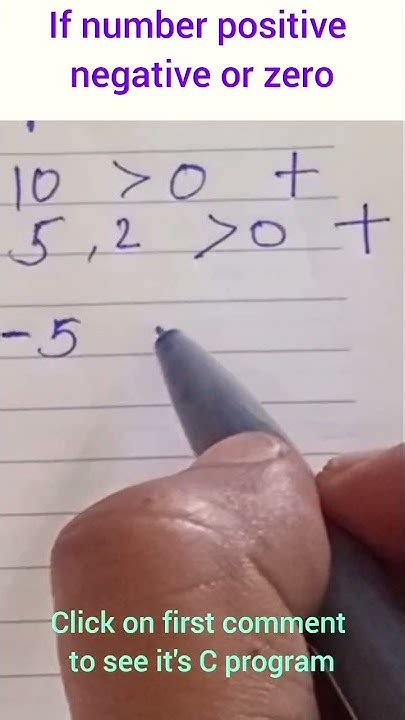 If number positive
negative or zero
10 > 0 +
5, 2 > 0 +
-5
Click on first comment
to see it's C program